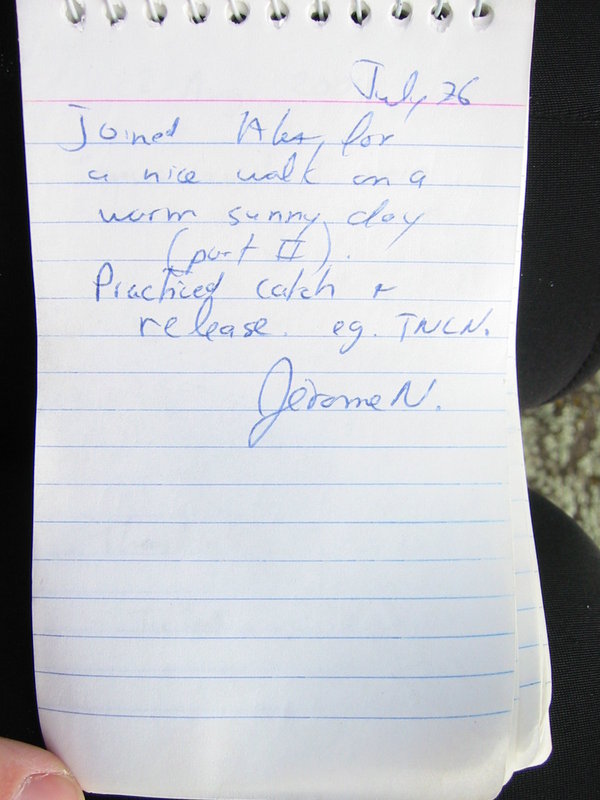 July 26
Joined Alex for
a nice walk on a
warm sunny day
(part II).
Practiced catch +
release. eg. TNLN.
Jérome N.